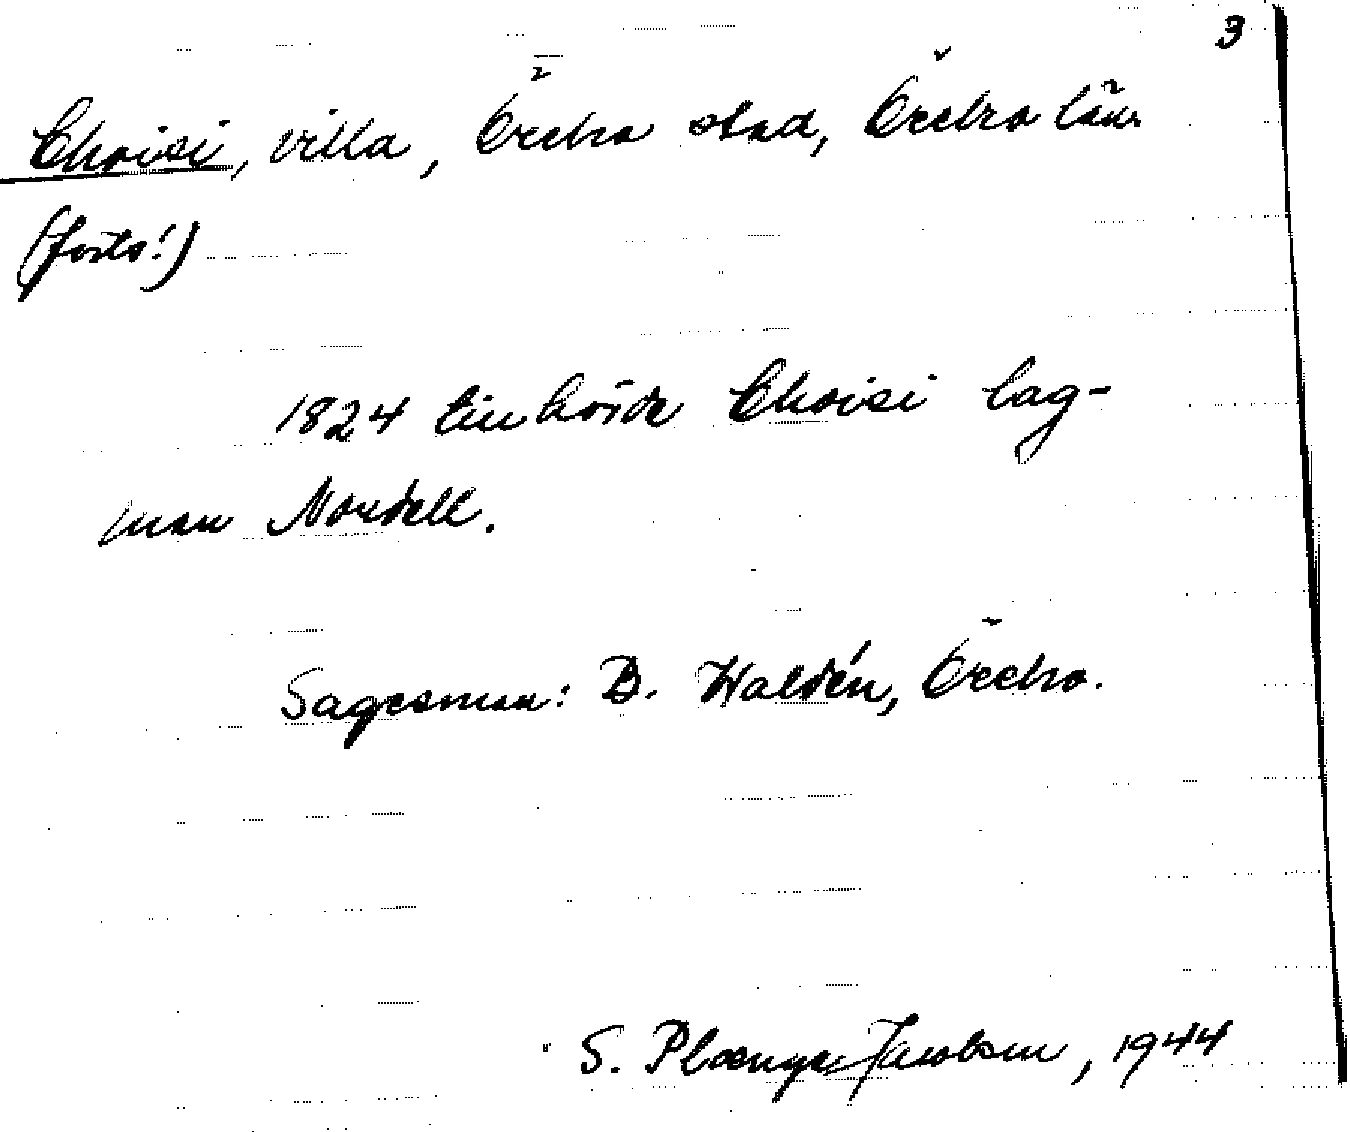 3
Choisi, villa, Örebro stad, Örebro län
(forts!)
1824 tillhörde Choisi lag-
man Nordell.
Sagesman: B. Waldén, Örebro.
S. Jacobson, 1944